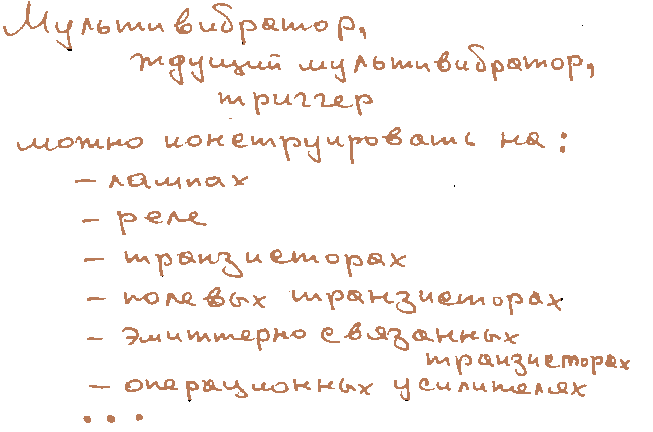 Мультивибратор,
ждущий мультивибратор,
триггер
можно конструировать на:
– лампах
– реле
– транзисторах
– полевых транзисторах
– эмиттерно связанных
транзисторах
– операционных усилителях
...